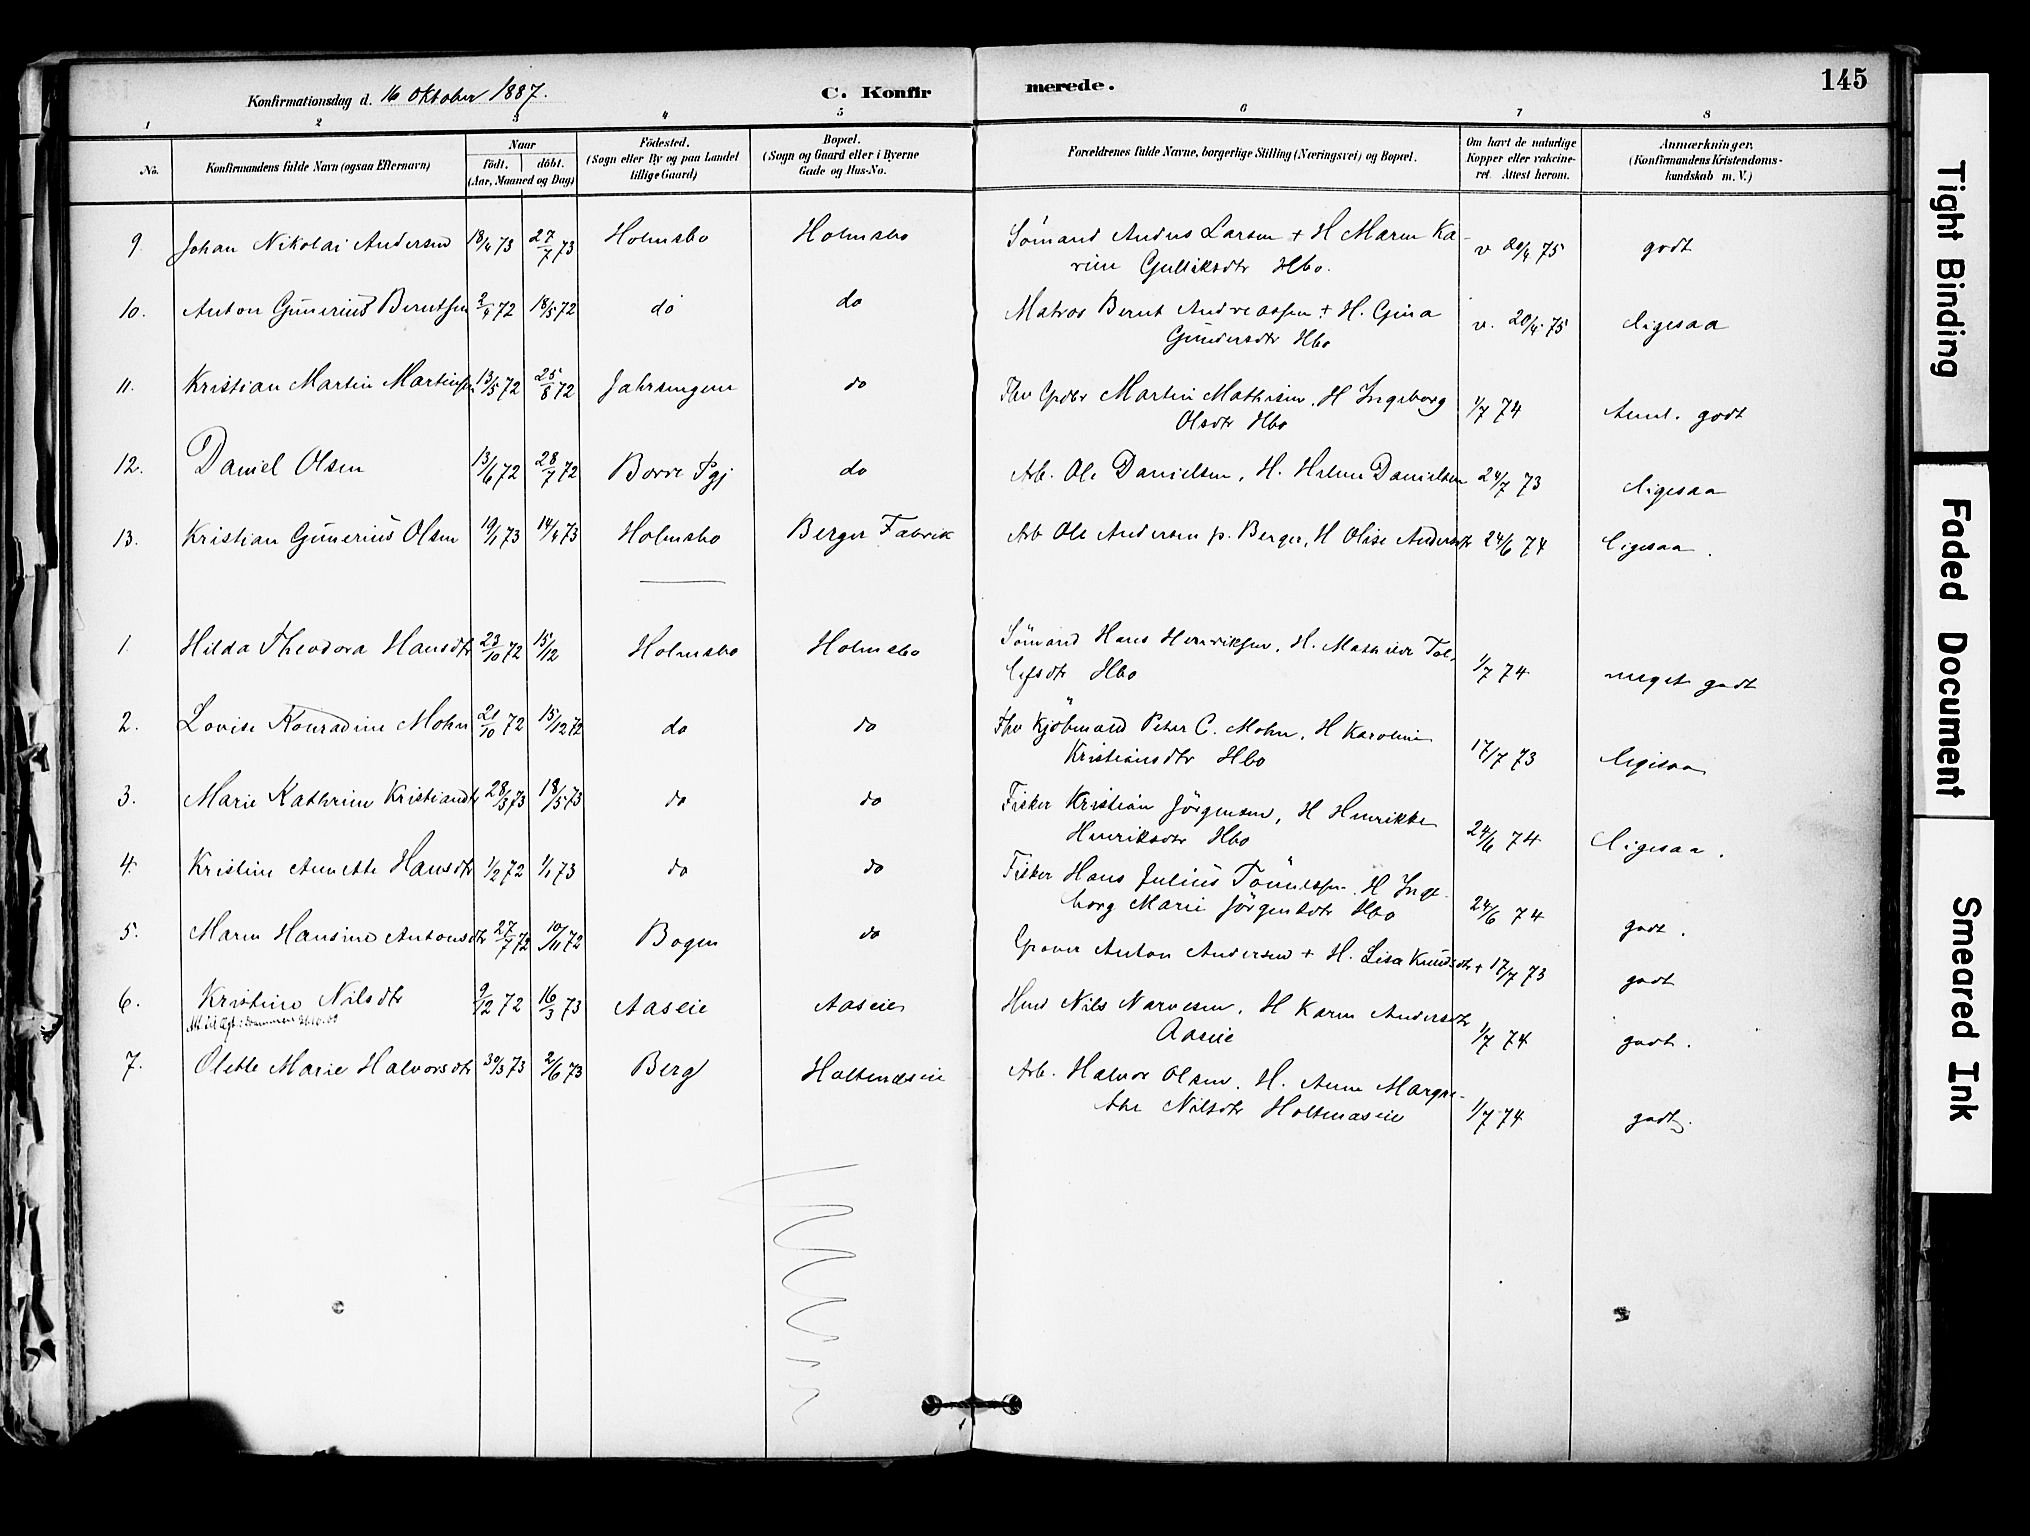 Konfirmationsdag d. 16 Oktober 1887. C. Konfirmerede. 145
1 2 3 4 5 6 7 8
No. Konfirmandens fulde Navn (ogsaa Efternavn) Naar födt. döbt. (Aar, Maaned og Dag) Födested. (Sogn eller By og paa Landet tillige Gaard) Bopæl. (Sogn og Gaard eller i Byerne Gade og Hus-No. Forældrenes fulde Navne, borgerlige Stilling (Næringsvei) og Bopæl. Om havt de naturlige Kopper eller vakcineret. Attest herom. Anmærkninger. (Konfirmandens Kristendomskundskab m. V.)
9. Johan Nikolai Andersen 18/4 73 27/7 73 Holmsbo Holmsbo Sömand Anders Larsen + H Maren Ka- v 20/4 75 godt
rine Gulliksdtr Hbo.
10. Anton Gunerius Berntsen 2/4 72 18/5 72 do do Matros Bernt Andreassen + H. Gina v. 20/4 75 ligesaa
Gundersdtr Hbo
11. Kristian Martin Martinsen 13/5 72 25/8 72 Jahrsengen do Fhv Gdbr Martin Mathisen, H Ingeborg 1/7 74 Meget godt
Olsdtr Hbo
12. Daniel Olsen 13/6 72 28/7 72 Borre Pgj do Arb. Ole Danielsen, H. Helene Danielsen 24/7 73 ligesaa
13. Kristian Gunerius Olsen 19/1 73 14/4 73 Holmsbo Berger Fabrik Arb Ole Andersen p. Berger, H Olise Andersdtr 24/6 74 ligesaa.
1. Hilda Theodora Hansdtr 23/10 72 15/12 Holmsbo Holmsbo Sömand Hans Henriksen, H. Mathilde Tol- 1/7 74 meget godt
lefsdtr Hbo
2. Lovise Konradine Mohn 21/10 72 15/12 72 do do Fhv Kjöbmand Peter C. Mohn, H Karoline 17/7 73 ligesaa
Kristiansdtr Hbo
3. Marie Kathrine Kristiansdtr 28/3 73 18/5 73 do do Fisker Kristian Jörgensen, H Henrikke 24/6 74 ligesaa.
Henriksdtr Hbo
4. Kristine Annette Hansdtr 1/2 72 1/1 73 do do Fisker Hans Julius Tönnesen H Inge- 24/6 74 godt.
borg Marie Jörgensdtr Hbo
5. Maren Hansine Antonsdtr 27/7 72 10/11 72 Bogen do Graver Anton Andersen + H. Lisa Knudsdtr + 17/7 73 godt
6. Kristine Nilsdtr 9/12 72 16/3 73 Aaseie Aaseie Husm Nils Narvesen, H Karen Andersdtr 1/7 74 godt.
Aaseie
7. Olette Marie Halvorsdtr 30/3 73 2/6 73 Berg Holtenæseie Arb. Halvor Olsen, H. Anne Margre- 1/7 74 godt.
the Nilsdtr Holtenæseie
Tight Binding
Faded Document
Smeared Ink